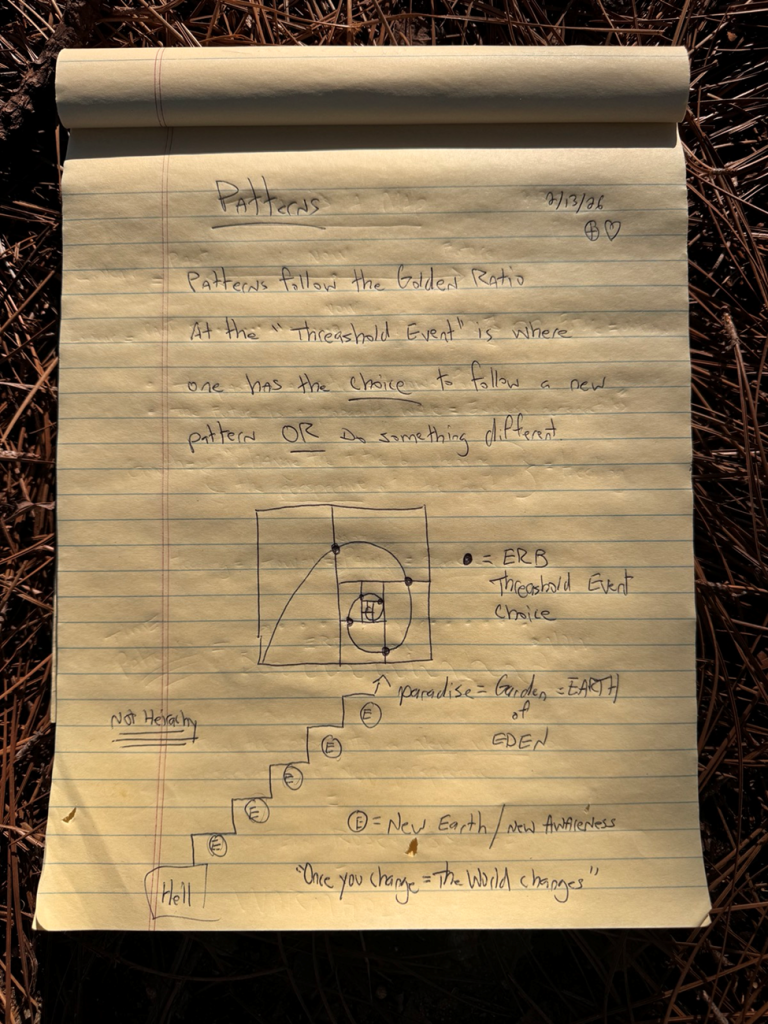 Patterns
2/13/26
⊕♡
Patterns follow the Golden Ratio
At the "Threashold Event" is where
one has the choice to follow a new
pattern OR Do something different.
• = ERB
Threashold Event
Choice
paradise = Garden = EARTH
of
EDEN
Not Heirachy
Ⓔ
Ⓔ
Ⓔ
Ⓔ
Ⓔ
Ⓔ = New Earth / new AWAreness
Hell
"Once you change = The World changes"